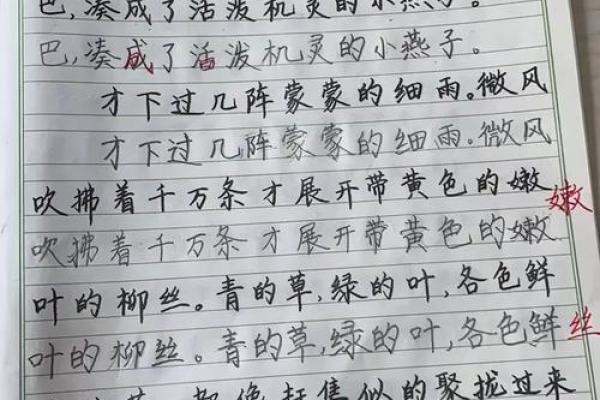 巴,凑成了活泼机灵的小燕子。
巴,凑成了活泼机灵的小燕子。
才下过几阵蒙蒙的细雨。微风
才下过几阵蒙蒙的细雨。微风
吹拂着千万条才展开带黄色的嫩
嫩
吹拂着千万条才展开带黄色的嫩
叶的柳丝。青的草,绿的叶,各色鲜
叶的柳丝。青的草,绿的叶,各色鲜
丝
都像赶集似的聚拢过来